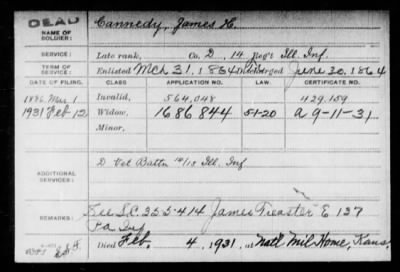 DEAD
NAME OF SOLDIER:
Cannedy, James H.
SERVICE:
Late rank, Co. D, 14 Reg't Ill. Inf.
TERM OF SERVICE:
Enlisted Mch 31, 1864 Discharged June 20, 1864
DATE OF FILING. CLASS. APPLICATION NO. LAW. CERTIFICATE NO.
1886 Mar 1 Invalid, 564,048 429.159
1931 Feb 12 Widow, 1686844 5-1-20 a 9-11-31
Minor,
ADDITIONAL SERVICES:
D Vet Battn 14/15 Ill. Inf
REMARKS:
See S.C. 355414 James Treaster E 137
Pa Inf
Died Feb. 4, 1931, at Nat'l Mil Home, Kans.